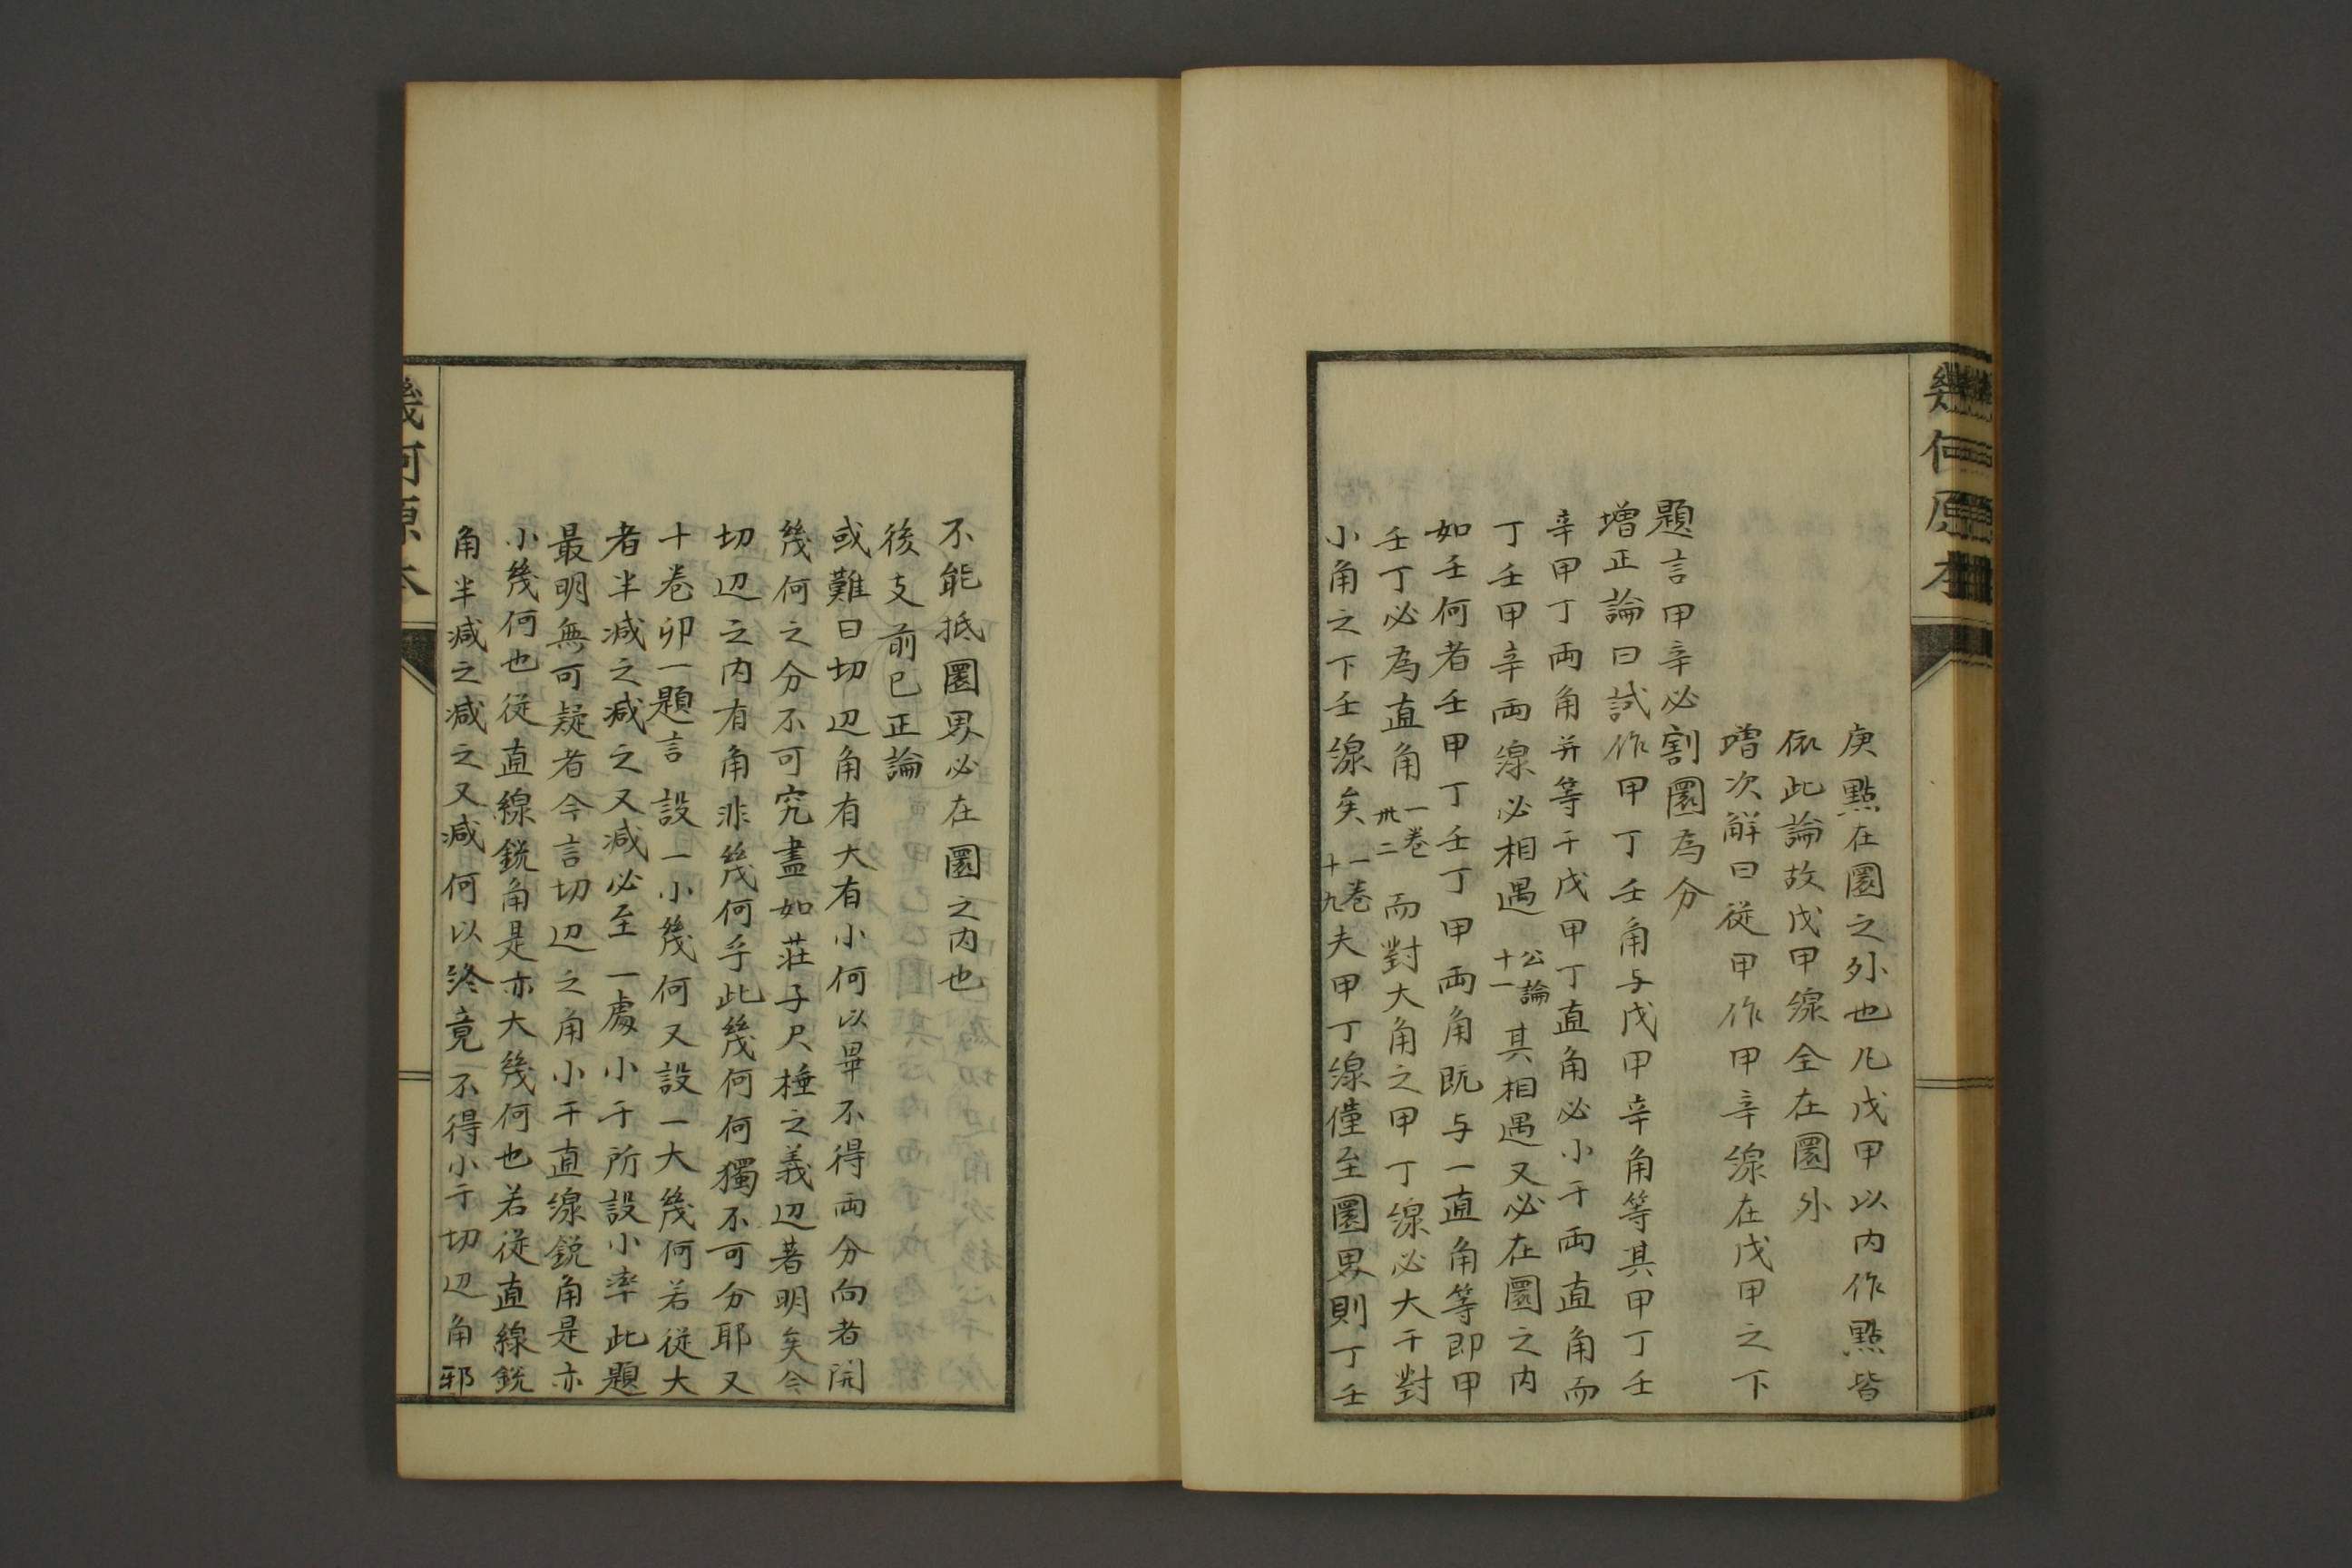 幾何原本
庚點在圜之外也凡戊甲以内作點皆
依此論故戊甲線全在圜外
增次解曰從甲作甲辛線在戊甲之下
題言甲辛必割圜為分
增正論曰試作甲丁壬角与戊甲辛角等其甲丁壬
辛甲丁兩角并等于戊甲丁直角必小于兩直角而
丁壬甲辛兩線必相遇公論十一其相遇又必在圜之内
如壬何者壬甲丁壬丁甲兩角既与一直角等即甲
壬丁必為直角一卷卅二而對大角之甲丁線必大于對
小角之下壬線矣一卷十九夫甲丁線僅至圜界則丁壬
不能抵圜界必在圜之内也
後支前已正論
或難曰切辺角有大有小何以畢不得両分向者開
幾何之分不可究盡如莊子尺棰之義辺著明矣今
切辺之内有角非幾何乎此幾何何獨不可分耶又
十卷卯一題言設一小幾何又設一大幾何若從大
者半減之減之又減必至一處小于所設小率此題
最明無可疑者今言切辺之角小于直線銳角是亦
小幾何也從直線銳角是亦大幾何也若從直線銳
角半減之減之又減何以終竟不得小于切辺角邪
幾何原本